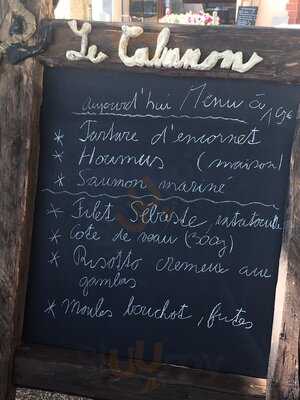 Le Cabanon
aujourd'hui Menu à 19€
* Tartare d'encornet
* Houmus (maison)
* Saumon mariné
* Filet Sébaste, ratatouille
* Côte de veau (300g)
* Risotto crémeux aux
gambas
* Moules bouchot, frites